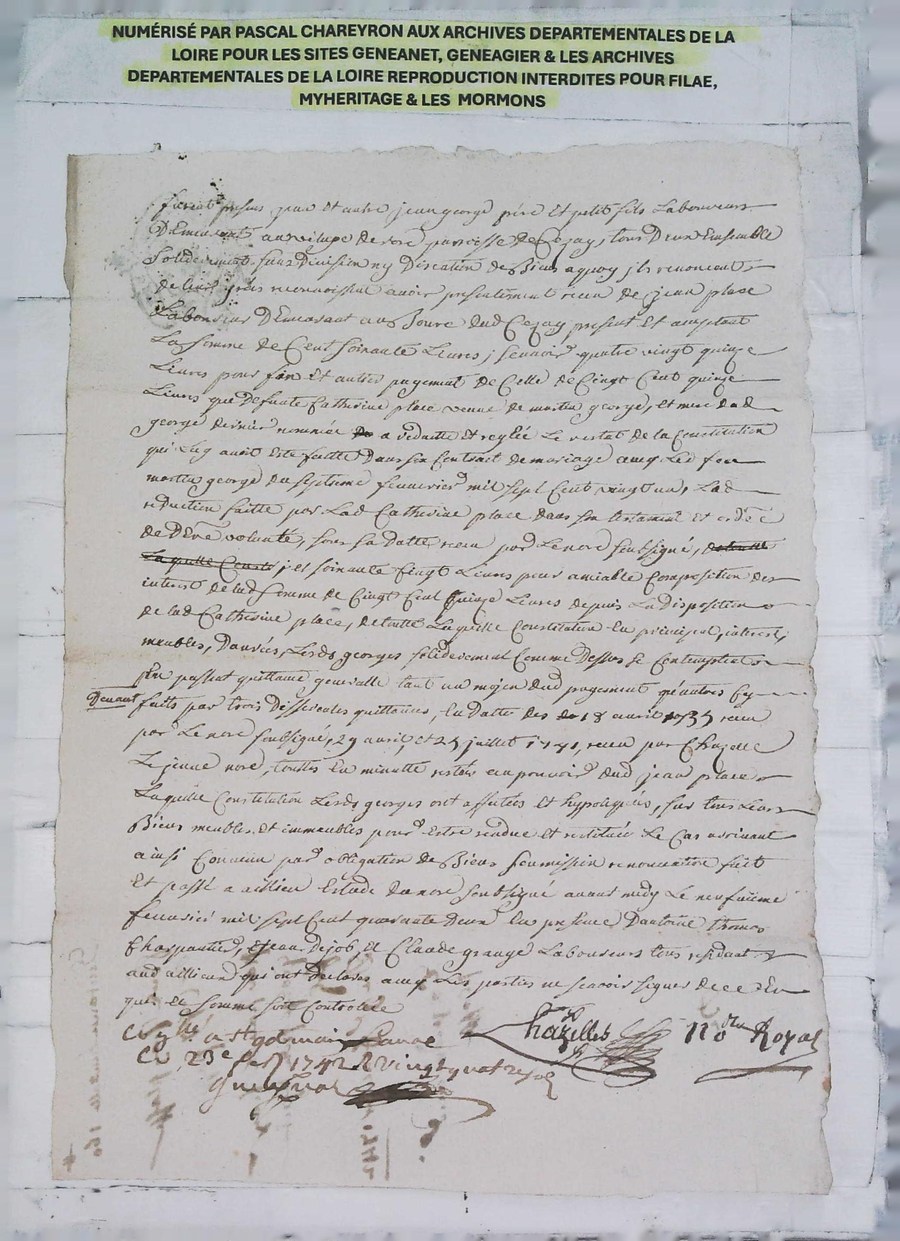 NUMÉRISÉ PAR PASCAL CHAREYRON AUX ARCHIVES DEPARTEMENTALES DE LA
LOIRE POUR LES SITES GENEANET, GENEAGIER & LES ARCHIVES
DEPARTEMENTALES DE LA LOIRE REPRODUCTION INTERDITES POUR FILAE,
MYHERITAGE & LES MORMONS
furent presens jean et autre jean george père et petit fils Laboureurs
Demeurant au vilage de soré paroisse de Cezay, tous Deux Ensemble
Solidairement sans Division ny Discution de Biens a quoy ils renoncent
de leurs gres reconnoissent avoir presentement receu de jean place
Laboureur Demeurant au Dud Cezay present et acceptant
La somme de Cent soixante Livres, scavoir quatre vingt quinze
Livres pour fin et autres payement de Celle de Cinq Cent quinze
Livres que Defunte Catherine place veuve de martin george, et mere dud
george dernier nommée a et reglée Le restat de la Constitution
qui Luy avoit este faitte Dans son Contract de mariage avec Led feu
martin george du septieme fevrier mil sept Cent vingt un, Lad
reduction faitte par Lad Catherine place dans son testament et ord ce
de Dre volonté, sous sa Datte receu par Le nore soubsigné,
et soixante Cinq Livres pour amiable Composition des
interet de lad somme de Cinq Cent quinze Livres depuis La Disposition
de lad Catherine place, de toutte Laquelle Constitution en principal, interet,
meubles, Danrées, Lesds georges solidairement Comme Dessus se Contemptent
En passent quittance generalle tant au moyen dud payement qu'autres Cy
Devant faits par trois Differentes quittances, en Datte des 18 avril 1735 receu
par Le nore soubsigne, 29 avril, et 25 juillet 1741, receu par Chazelle
Le jeune nore, touttes en minutte restée au pouvoir dud jean place
Laquelle Constitution Lesds georges ont assurées et hypotequés, sur tous Leurs
Biens meubles et immeubles pour Estre rendue et restituée Le Cas arrivant
ainsi Convenu par obligation de Biens soumission renonciation fait
Et passé a aillieu Estude du nore soubsigné avant midy Le neufvieme
fevrier mil sept Cent quarante Deux En presence D'antoine thomas
Charpantier, et jean Dejob, et Claude grange Laboureurs tous residants
aud aillieu qui ont Declarés avec Les parties ne scavoir signer de ce En
quis et sommés soit Controllée
Chazelles nore Royal
Con lle a St germain Laval
Le 23e fev 1742 R vingt quat sols